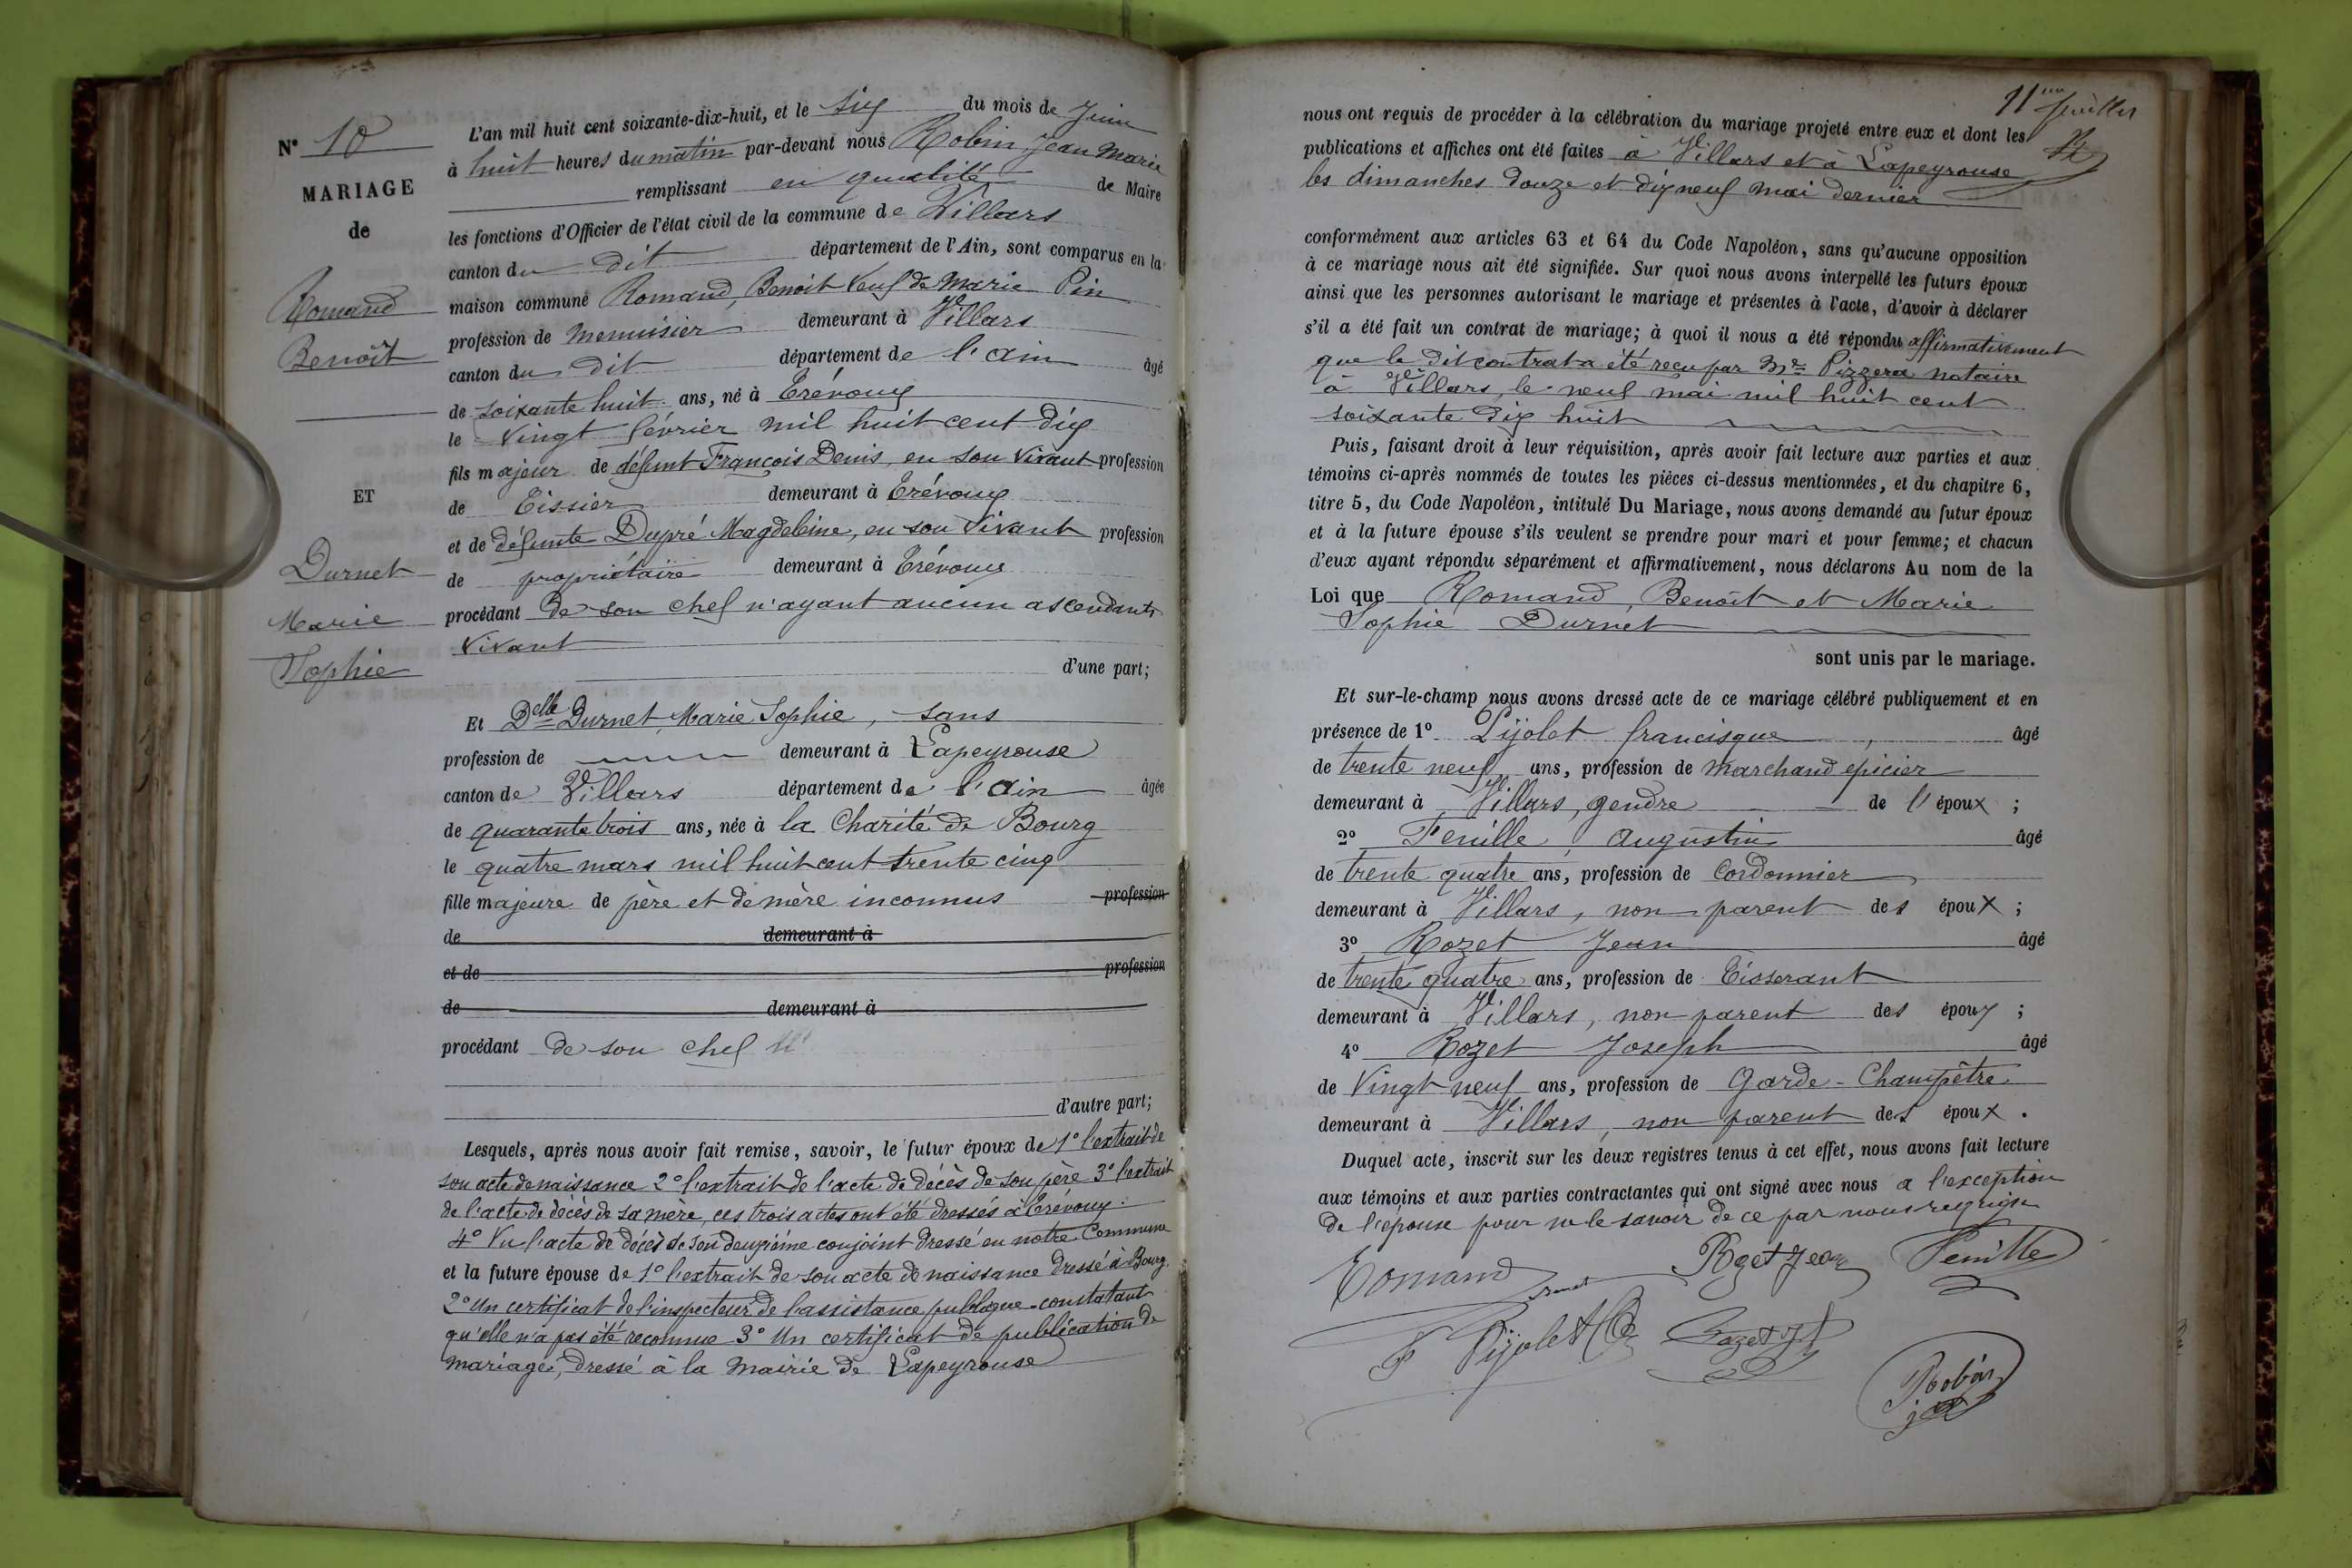 N° 10
MARIAGE
de
Romand
Benoît
ET
Durnet
Marie
Sophie
L'an mil huit cent soixante-dix-huit, et le six du mois de Juin
à huit heures du matin par-devant nous Robin Jean Marie
remplissant en qualité de Maire
les fonctions d'Officier de l'état civil de la commune de Villars
canton du dit département de l'Ain, sont comparus en la
maison commune Romand, Benoît Veuf de Marie Pin
profession de Menuisier demeurant à Villars
canton du dit département de l'ain âgé
de soixante huit ans, né à Trévoux
le vingt février mil huit cent dix
fils majeur de défunt François Denis, en son vivant profession
de Tissier demeurant à Trévoux
et de défunte Dupré Magdeleine, en son vivant profession
de propriétaire demeurant à Trévoux
procédant de son chef n'ayant aucun ascendants
vivant
d'une part;
Et Delle Durnet, Marie Sophie, sans
profession de demeurant à Lapeyrouse
canton de Villars département de l'ain âgée
de quarante trois ans, née à la Charité de Bourg
le quatre mars mil huit cent trente cinq
fille majeure de père et de mère inconnus profession
de demeurant à
et de profession
de demeurant à
procédant de son chef
d'autre part;
Lesquels, après nous avoir fait remise, savoir, le futur époux de 1° l'extrait de
son acte de naissance 2° l'extrait de l'acte de décès de son père 3° l'extrait
de l'acte de décès de sa mère, ces trois actes ont été dressés à Trévoux
4° Vu l'acte de décès de son deuxième conjoint dressé en notre Commune
et la future épouse de 1° l'extrait de son acte de naissance dressé à Bourg.
2° Un certificat de l'inspecteur de l'assistance publique constatant
qu'elle n'a pas été reconnue 3° Un certificat de publication de
mariage, dressé à la Mairie de Lapeyrouse
11me feuillet
nous ont requis de procéder à la célébration du mariage projeté entre eux et dont les
publications et affiches ont été faites à Villars et à Lapeyrouse
les dimanches douze et dix neuf mai dernier
conformément aux articles 63 et 64 du Code Napoléon, sans qu'aucune opposition
à ce mariage nous ait été signifiée. Sur quoi nous avons interpellé les futurs époux
ainsi que les personnes autorisant le mariage et présentes à l'acte, d'avoir à déclarer
s'il a été fait un contrat de mariage; à quoi il nous a été répondu affirmativement
que le dit contrat a été reçu par Me Pizzera notaire
à Villars, le neuf mai mil huit cent
soixante dix huit
Puis, faisant droit à leur réquisition, après avoir fait lecture aux parties et aux
témoins ci-après nommés de toutes les pièces ci-dessus mentionnées, et du chapitre 6,
titre 5, du Code Napoléon, intitulé Du Mariage, nous avons demandé au futur époux
et à la future épouse s'ils veulent se prendre pour mari et pour femme; et chacun
d'eux ayant répondu séparément et affirmativement, nous déclarons Au nom de la
Loi que Romand, Benoît et Marie
Sophie Durnet
sont unis par le mariage.
Et sur-le-champ nous avons dressé acte de ce mariage célébré publiquement et en
présence de 1° Pijolet francisque, âgé
de trente neuf ans, profession de marchand epicier
demeurant à Villars, gendre de l'époux ;
2° Fenille Augustin âgé
de trente quatre ans, profession de Cordonnier
demeurant à Villars, non parent des époux ;
3° Rozet Jean âgé
de trente quatre ans, profession de Tisserant
demeurant à Villars, non parent des époux ;
4° Rozet Joseph âgé
de Vingt neuf ans, profession de Garde-Champêtre
demeurant à Villars, non parent des époux .
Duquel acte, inscrit sur les deux registres tenus à cet effet, nous avons fait lecture
aux témoins et aux parties contractantes qui ont signé avec nous a l'exception
de l'epouse pour ne le savoir de ce par nous requise
Romand Rozet Jean Fenille
F Pijolet Rozet J
Robin